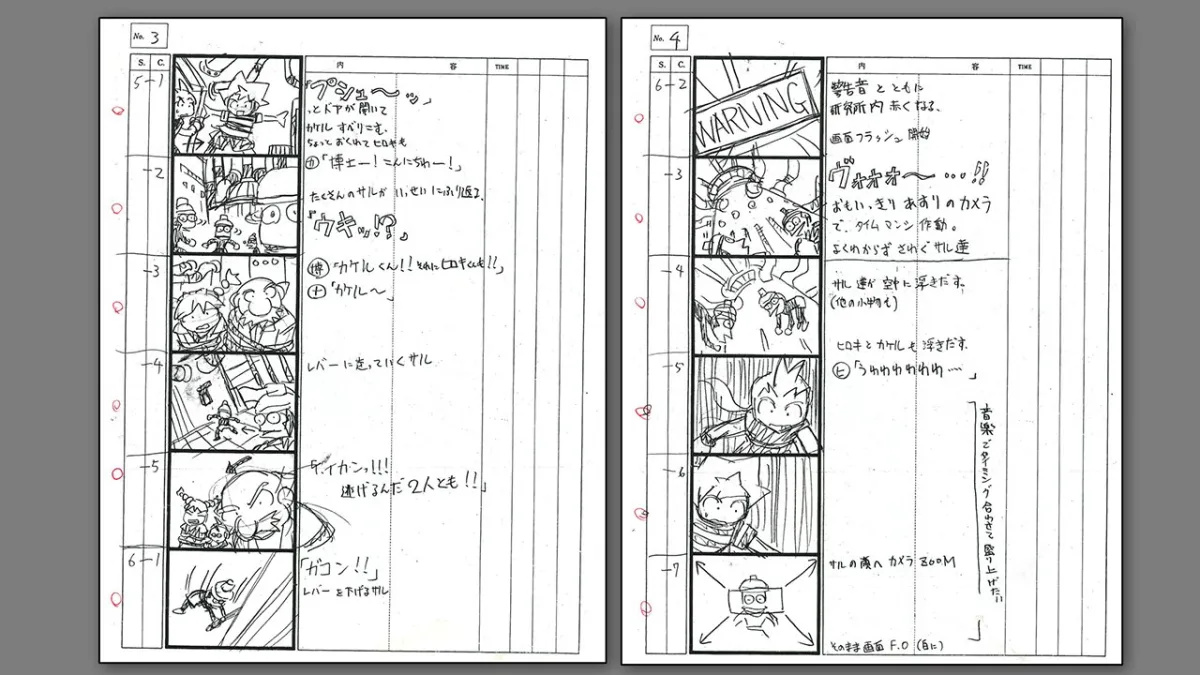 No. 3
S. C. 内 容 TIME
5-1
「プシューッ」
っとドアが開いて
カケル すべりこむ、
ちょっと おくれて ヒロキも
カ「博士ー!こんにちわー!」
-2
たくさんのサルが いっせいにふり返る。
「ウキッ!?」
-3
博「カケルくん!!それにヒロキくんも!!」
ナ「カケル〜」
-4
レバーに走っていくサル
-5
「イカンッ!!!
逃げるんだ2人とも!!」
6-1
「ガコン!!」
レバーを下げるサル
No. 4
S. C. 内 容 TIME
6-2
WARNING
警告音 と ともに
研究所内 赤くなる。
画面フラッシュ 開始
-3
ヴォォォ〜…!!
おもいっきり あおりのカメラ
で、タイムマシン 作動。
よくわからず さわぐ サル達
-4
サル達が 空中に 浮きだす。
(他の小物も)
ヒロキとカケルも 浮きだす。
-5
ヒ「うわわわわわわ…」
音楽でタイミング合わせて盛り上げたい
-6
-7
サルの顔へ カメラ ZOOM
そのまま画面 F.O (白に)